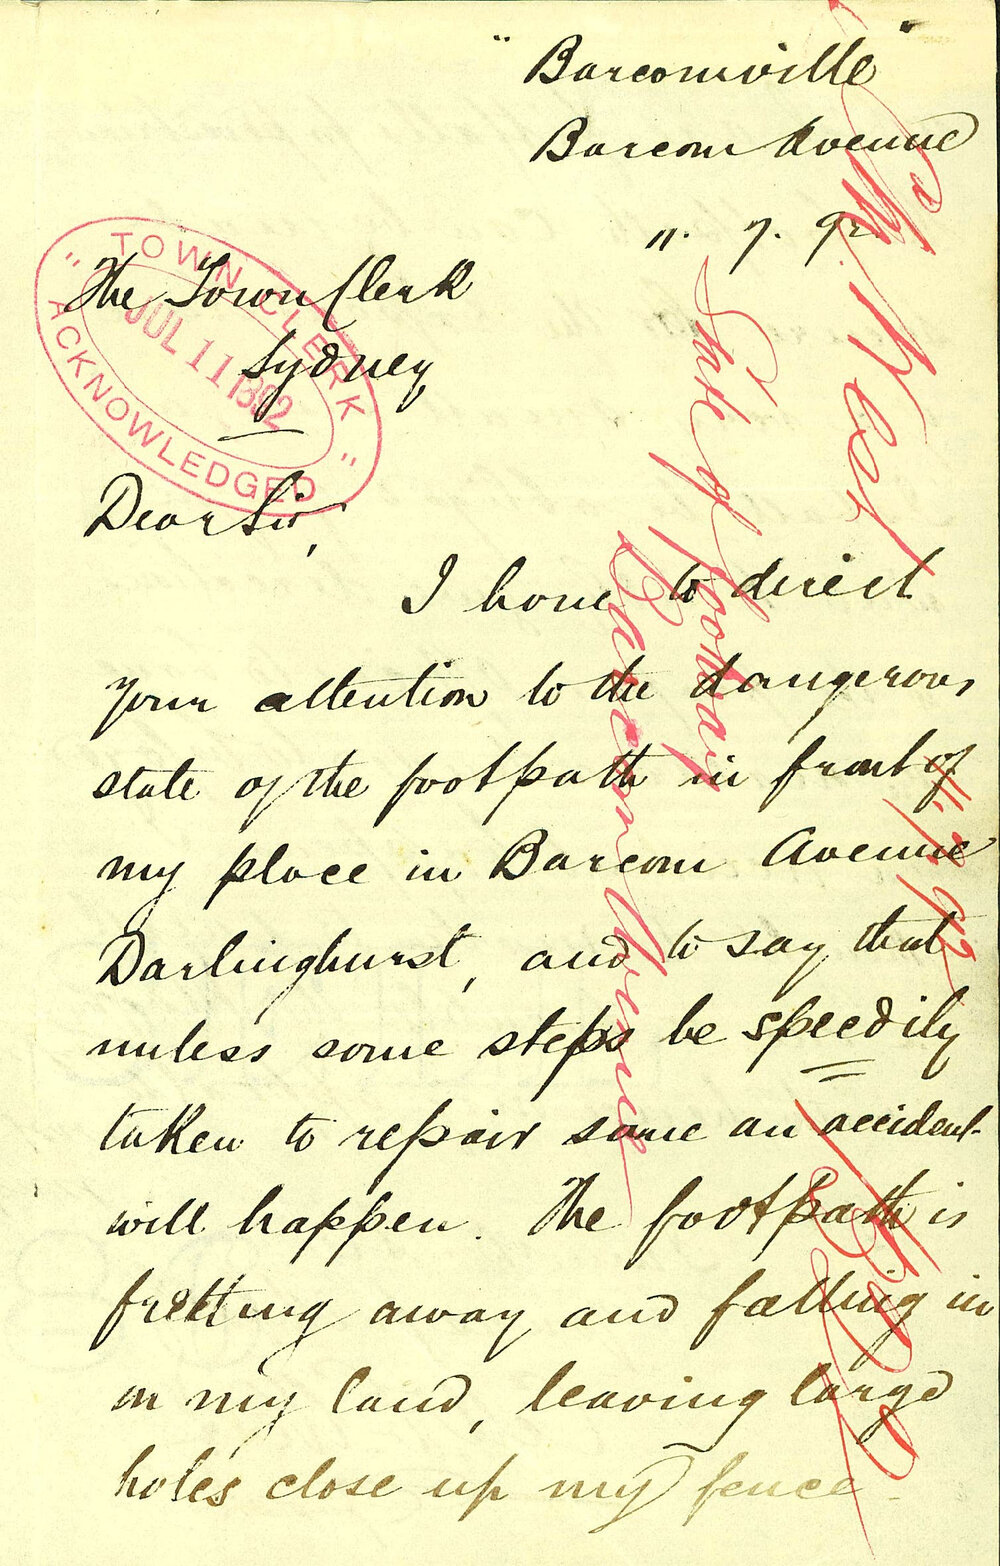 "Barcomville"
Barcom Avenue
11. 7. 92.
The Town Clerk
Sydney
"TOWN CLERK"
JUL 11 1892
"ACKNOWLEDGED"
Dear Sir,
I have to direct
your attention to the dangerous
state of the footpath in front of
my place in Barcom Avenue
Darlinghurst, and to say that
unless some steps be speedily
taken to repair same an accident
will happen. The footpath is
fretting away and falling in
on my land, leaving large
holes close up my fence
State of footway
Barcom Avenue
11.7.92